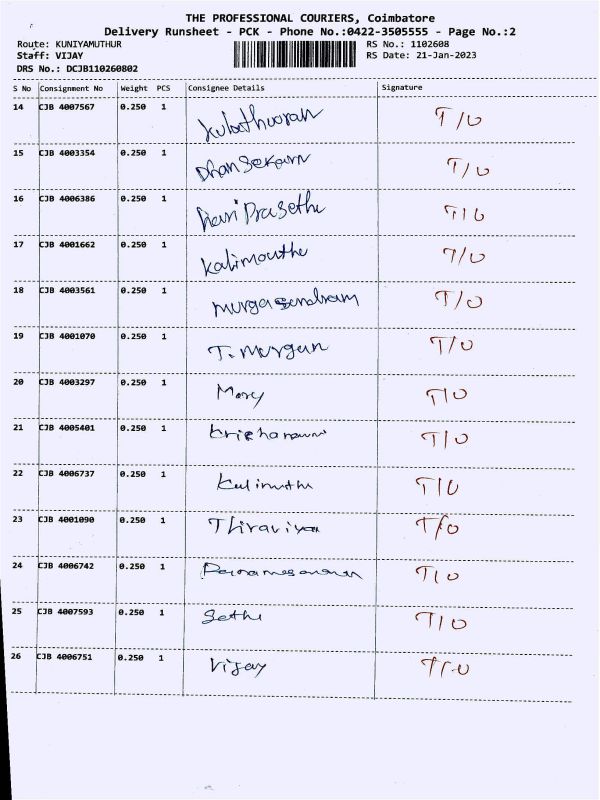 THE PROFESSIONAL COURIERS, Coimbatore
Delivery Runsheet - PCK - Phone No.:0422-3505555 - Page No.:2
Route: KUNIYAMUTHUR RS No.: 1102608
Staff: VIJAY RS Date: 21-Jan-2023
DRS No.: DCJB110260802
S No Consignment No Weight PCS Consignee Details Signature
14 CJB 4007567 0.250 1 T/O
15 CJB 4003354 0.250 1 DhanSekarn T/O
16 CJB 4006386 0.250 1 T/O
17 CJB 4001662 0.250 1 Kalimouthu T/O
18 CJB 4003561 0.250 1 T/O
19 CJB 4001070 0.250 1 T. Murgan T/O
20 CJB 4003297 0.250 1 Mary T/O
21 CJB 4005401 0.250 1 T/O
22 CJB 4006737 0.250 1 Kalimuthu T/O
23 CJB 4001090 0.250 1 Thiraviya T/O
24 CJB 4006742 0.250 1 T/O
25 CJB 4007593 0.250 1 Sethu T/O
26 CJB 4006751 0.250 1 Vijay T/O